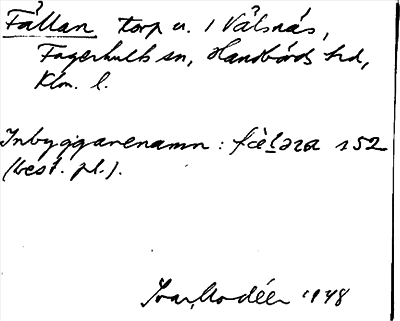 Fållan torp u. 1 Vålsnäs,
Fagerhults sn, Handbörds hd,
Klm. l.
Inbyggarenamn: fälara 152
(best. pl.).
Ivar Modéer 1948